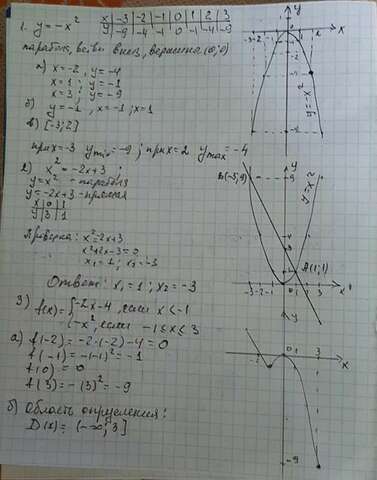 1. y = -x²
x -3 -2 -1 0 1 2 3
y -9 -4 -1 0 -1 -4 -9
парабола, ветви вниз, вершина (0; 0)
а) x = -2, y = -4
x = 1; y = -1
x = 3; y = -9
б) y = -1, x = -1; x = 1
в) [-3; 2]
при x = -3 y min = -9; при x = 2 y max = -4
2) x² = -2x+3
y = x² - парабола
y = -2x+3 - прямая
x 0 1
y 3 1
Проверка: x² = -2x+3
x²+2x-3=0
x₁ = 1; x₂ = -3
Ответ: x₁ = 1; x₂ = -3
3) f(x) = { -2x-4, если x < -1
-x², если -1 ≤ x ≤ 3
а) f(-2) = -2·(-2)-4 = 0
f(-1) = -(-1)² = -1
f(0) = 0
f(3) = -(3)² = -9
б) Область определения:
D(x) = (-∞; 3]
y
x
-3 -2 -1
y = -x²
y
9
y = x²
B(-3; 9)
A(1; 1)
-3 -2 -1 0 1 2 3 x
y
x
3
-9